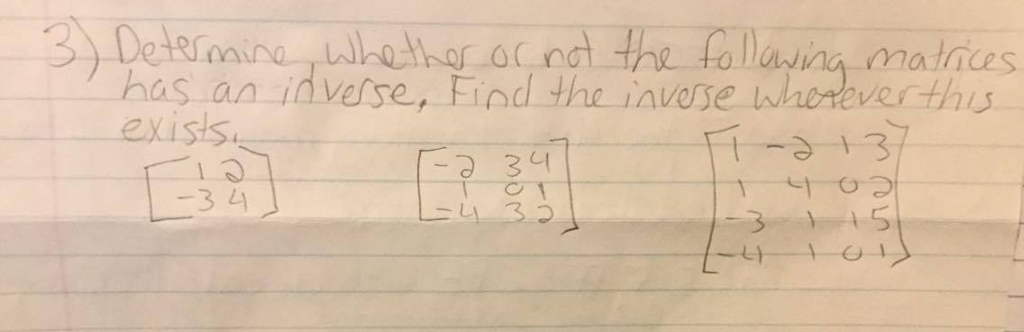 3) Determine, whether or not the following matrices
has an inverse, Find the inverse wherever this
exists.
[1 2] [-2 3 4] [1 -2 1 3]
[-3 4] [1 0 1] [1 4 0 2]
[-4 3 2] [-3 1 1 5]
[-4 1 0 1]